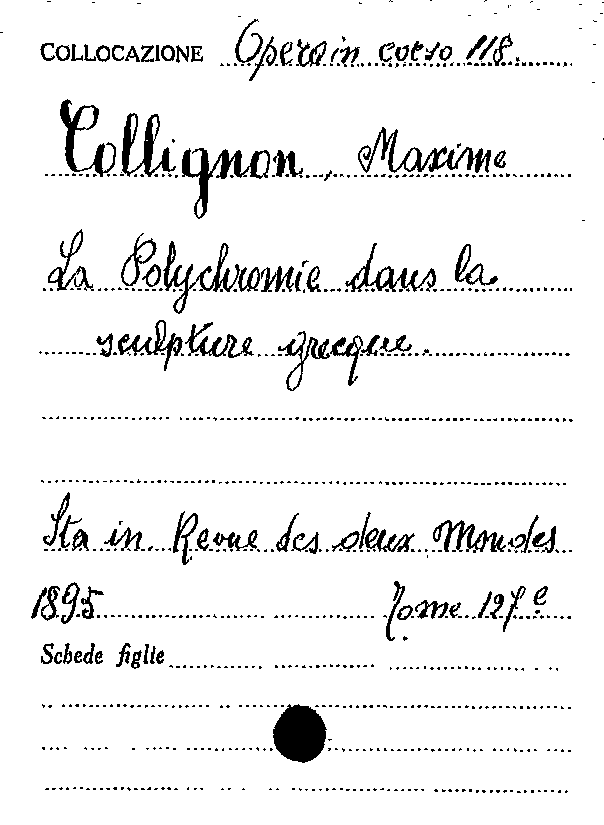 COLLOCAZIONE Opera in corso 118.
Collignon, Maxime
La Polychromie dans la
sculpture grecque.
Sta in Revue des deux Mondes
1895 Tome 127e
Schede figlie